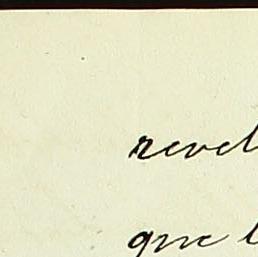 revel
que l